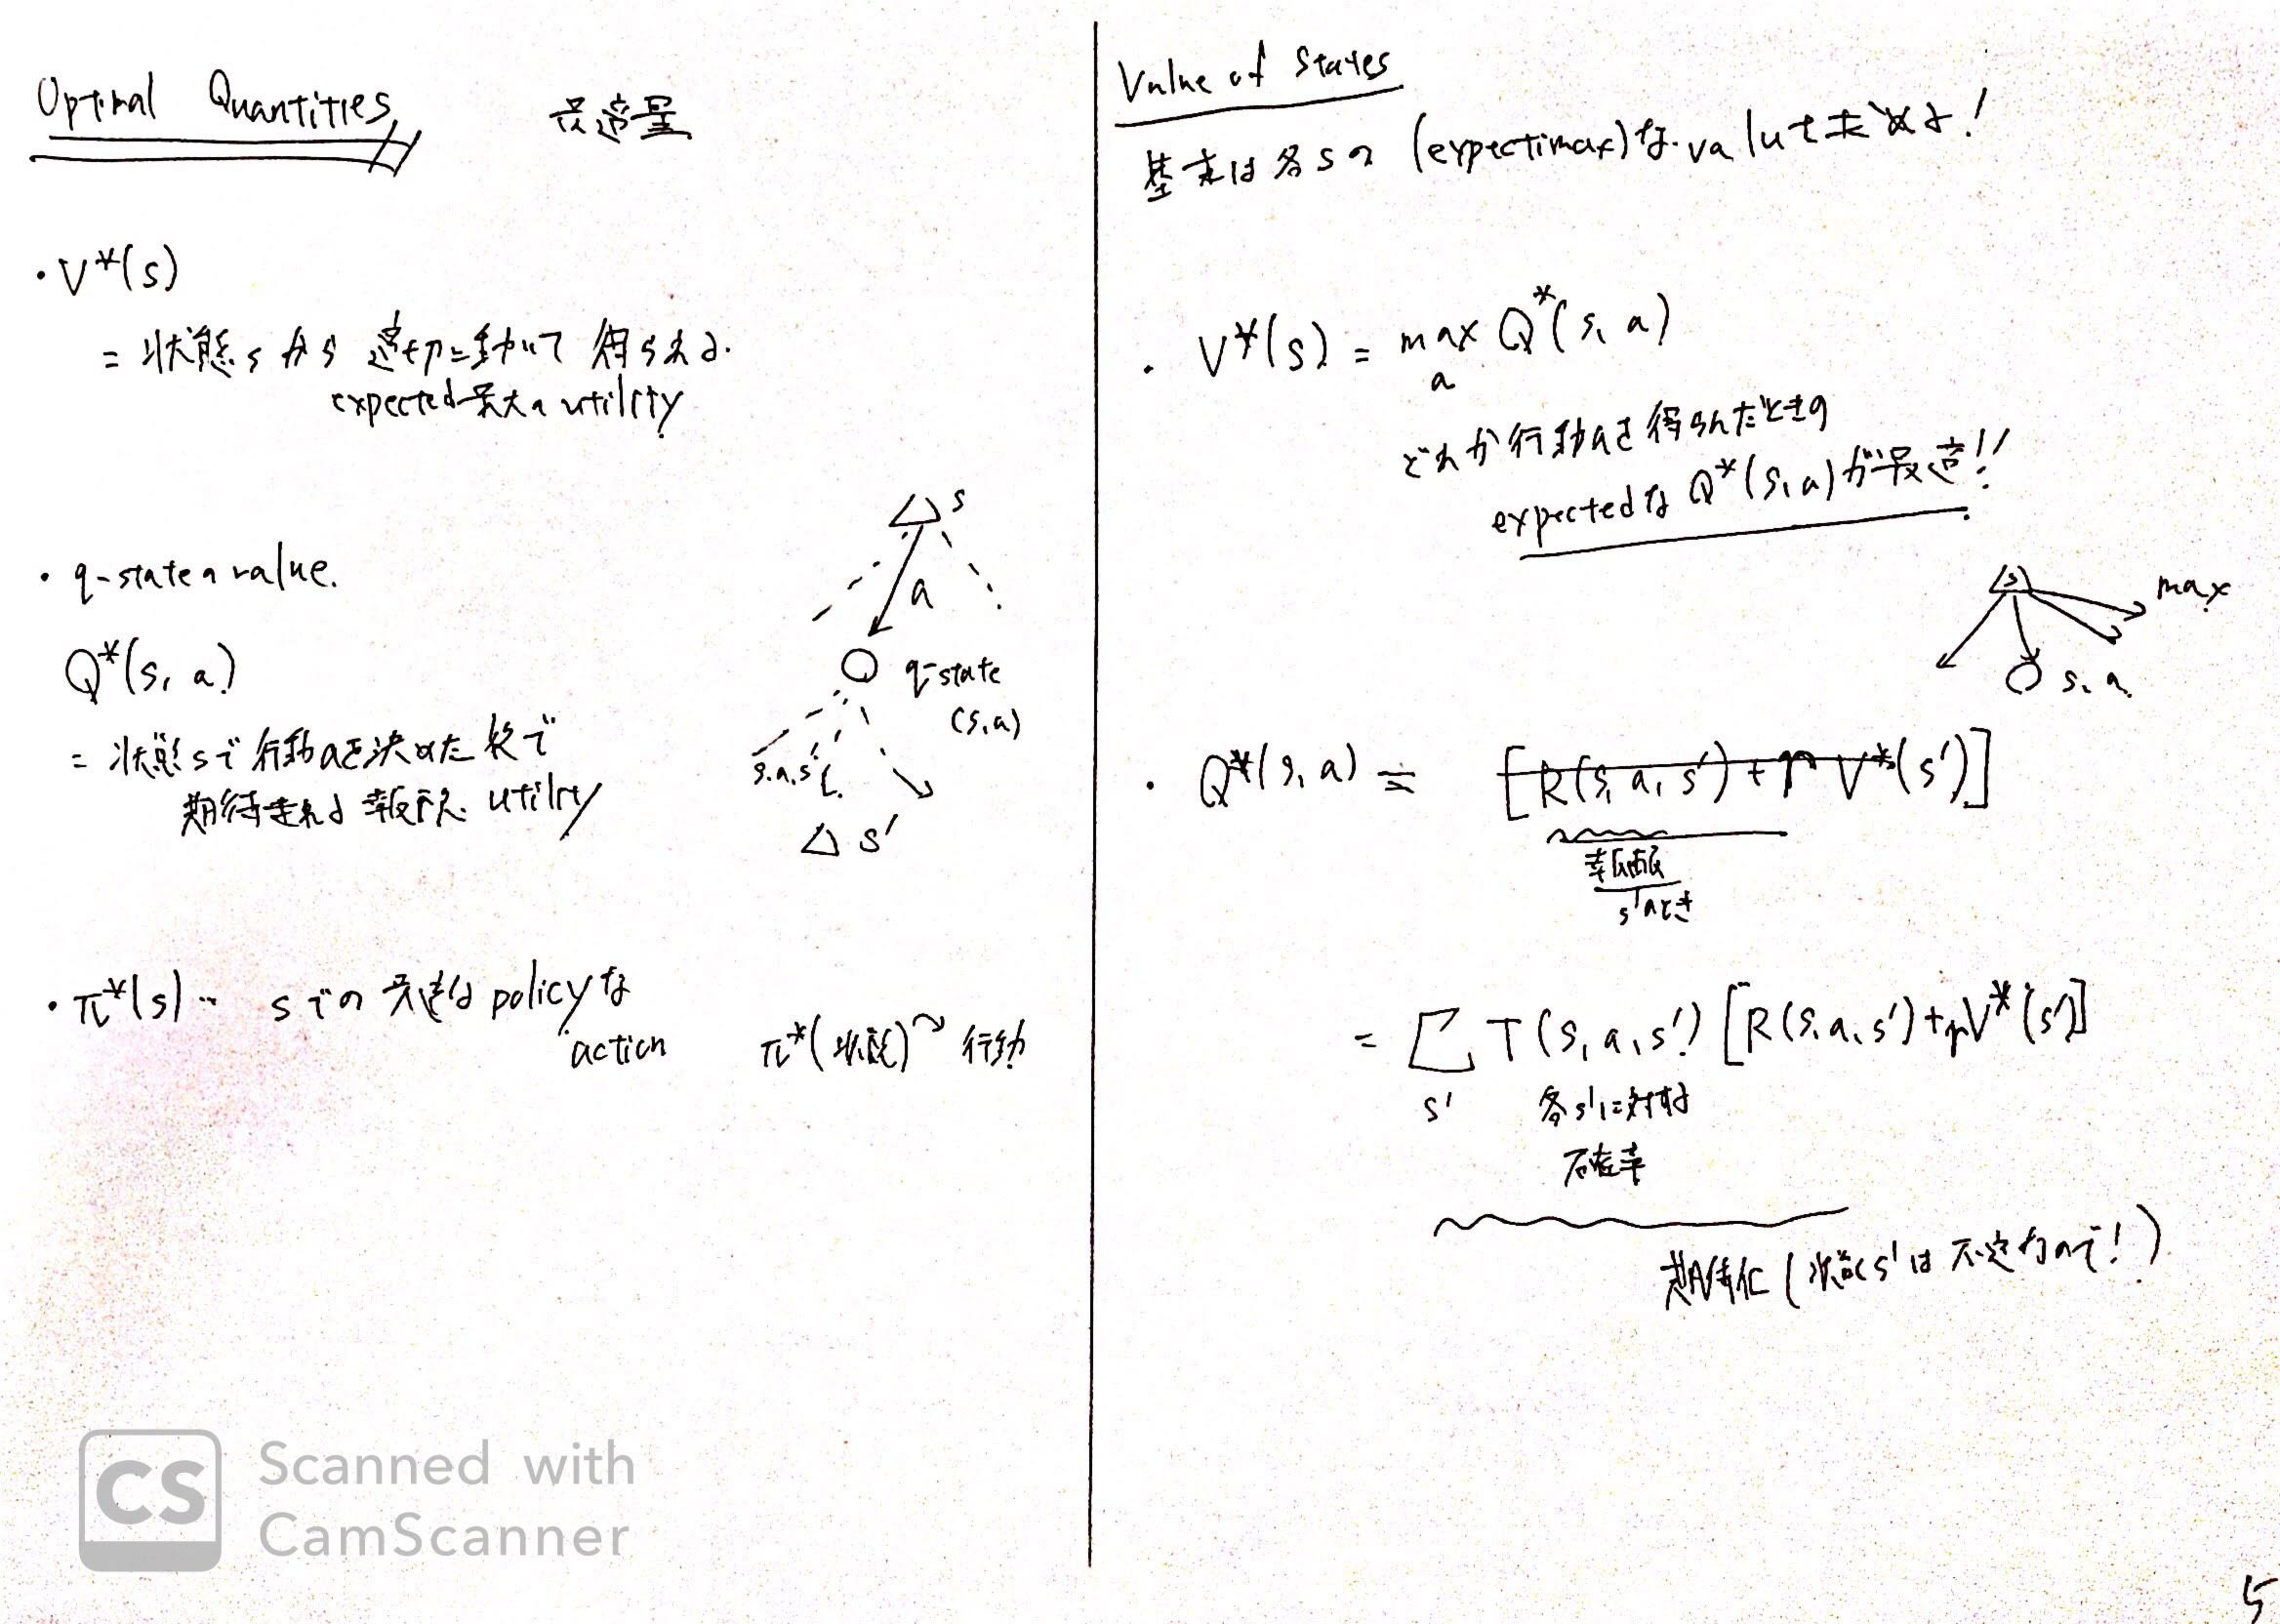 Optimal Quantities 最適量
・V*(s)
= 状態sから適切に動いて得られる
expected最大のutility
・q-stateのvalue.
Q*(s, a)
= 状態sで行動aを決めた後で
期待される報酬. utility
s
a
q-state
(s,a)
s,a,s'
s'
・π*(s) … sでの最適なpolicyな
action
π*(状態)→行動
Value of States
基本は各sの(expectimax)な value を求める!
・V*(s) = max Q*(s, a)
a
どれか行動aを得らんだときの
expectedな Q*(s,a)が最高!!
(s)
max
s, a
・Q*(s, a) = [R(s, a, s') + γ V*(s')]
報酬
s'のとき
= Σ T(s, a, s') [R(s,a,s')+γV*(s')]
s'
各s'に対する
確率
期待化(状態s'は不定なので!)
CS Scanned with
CamScanner
5